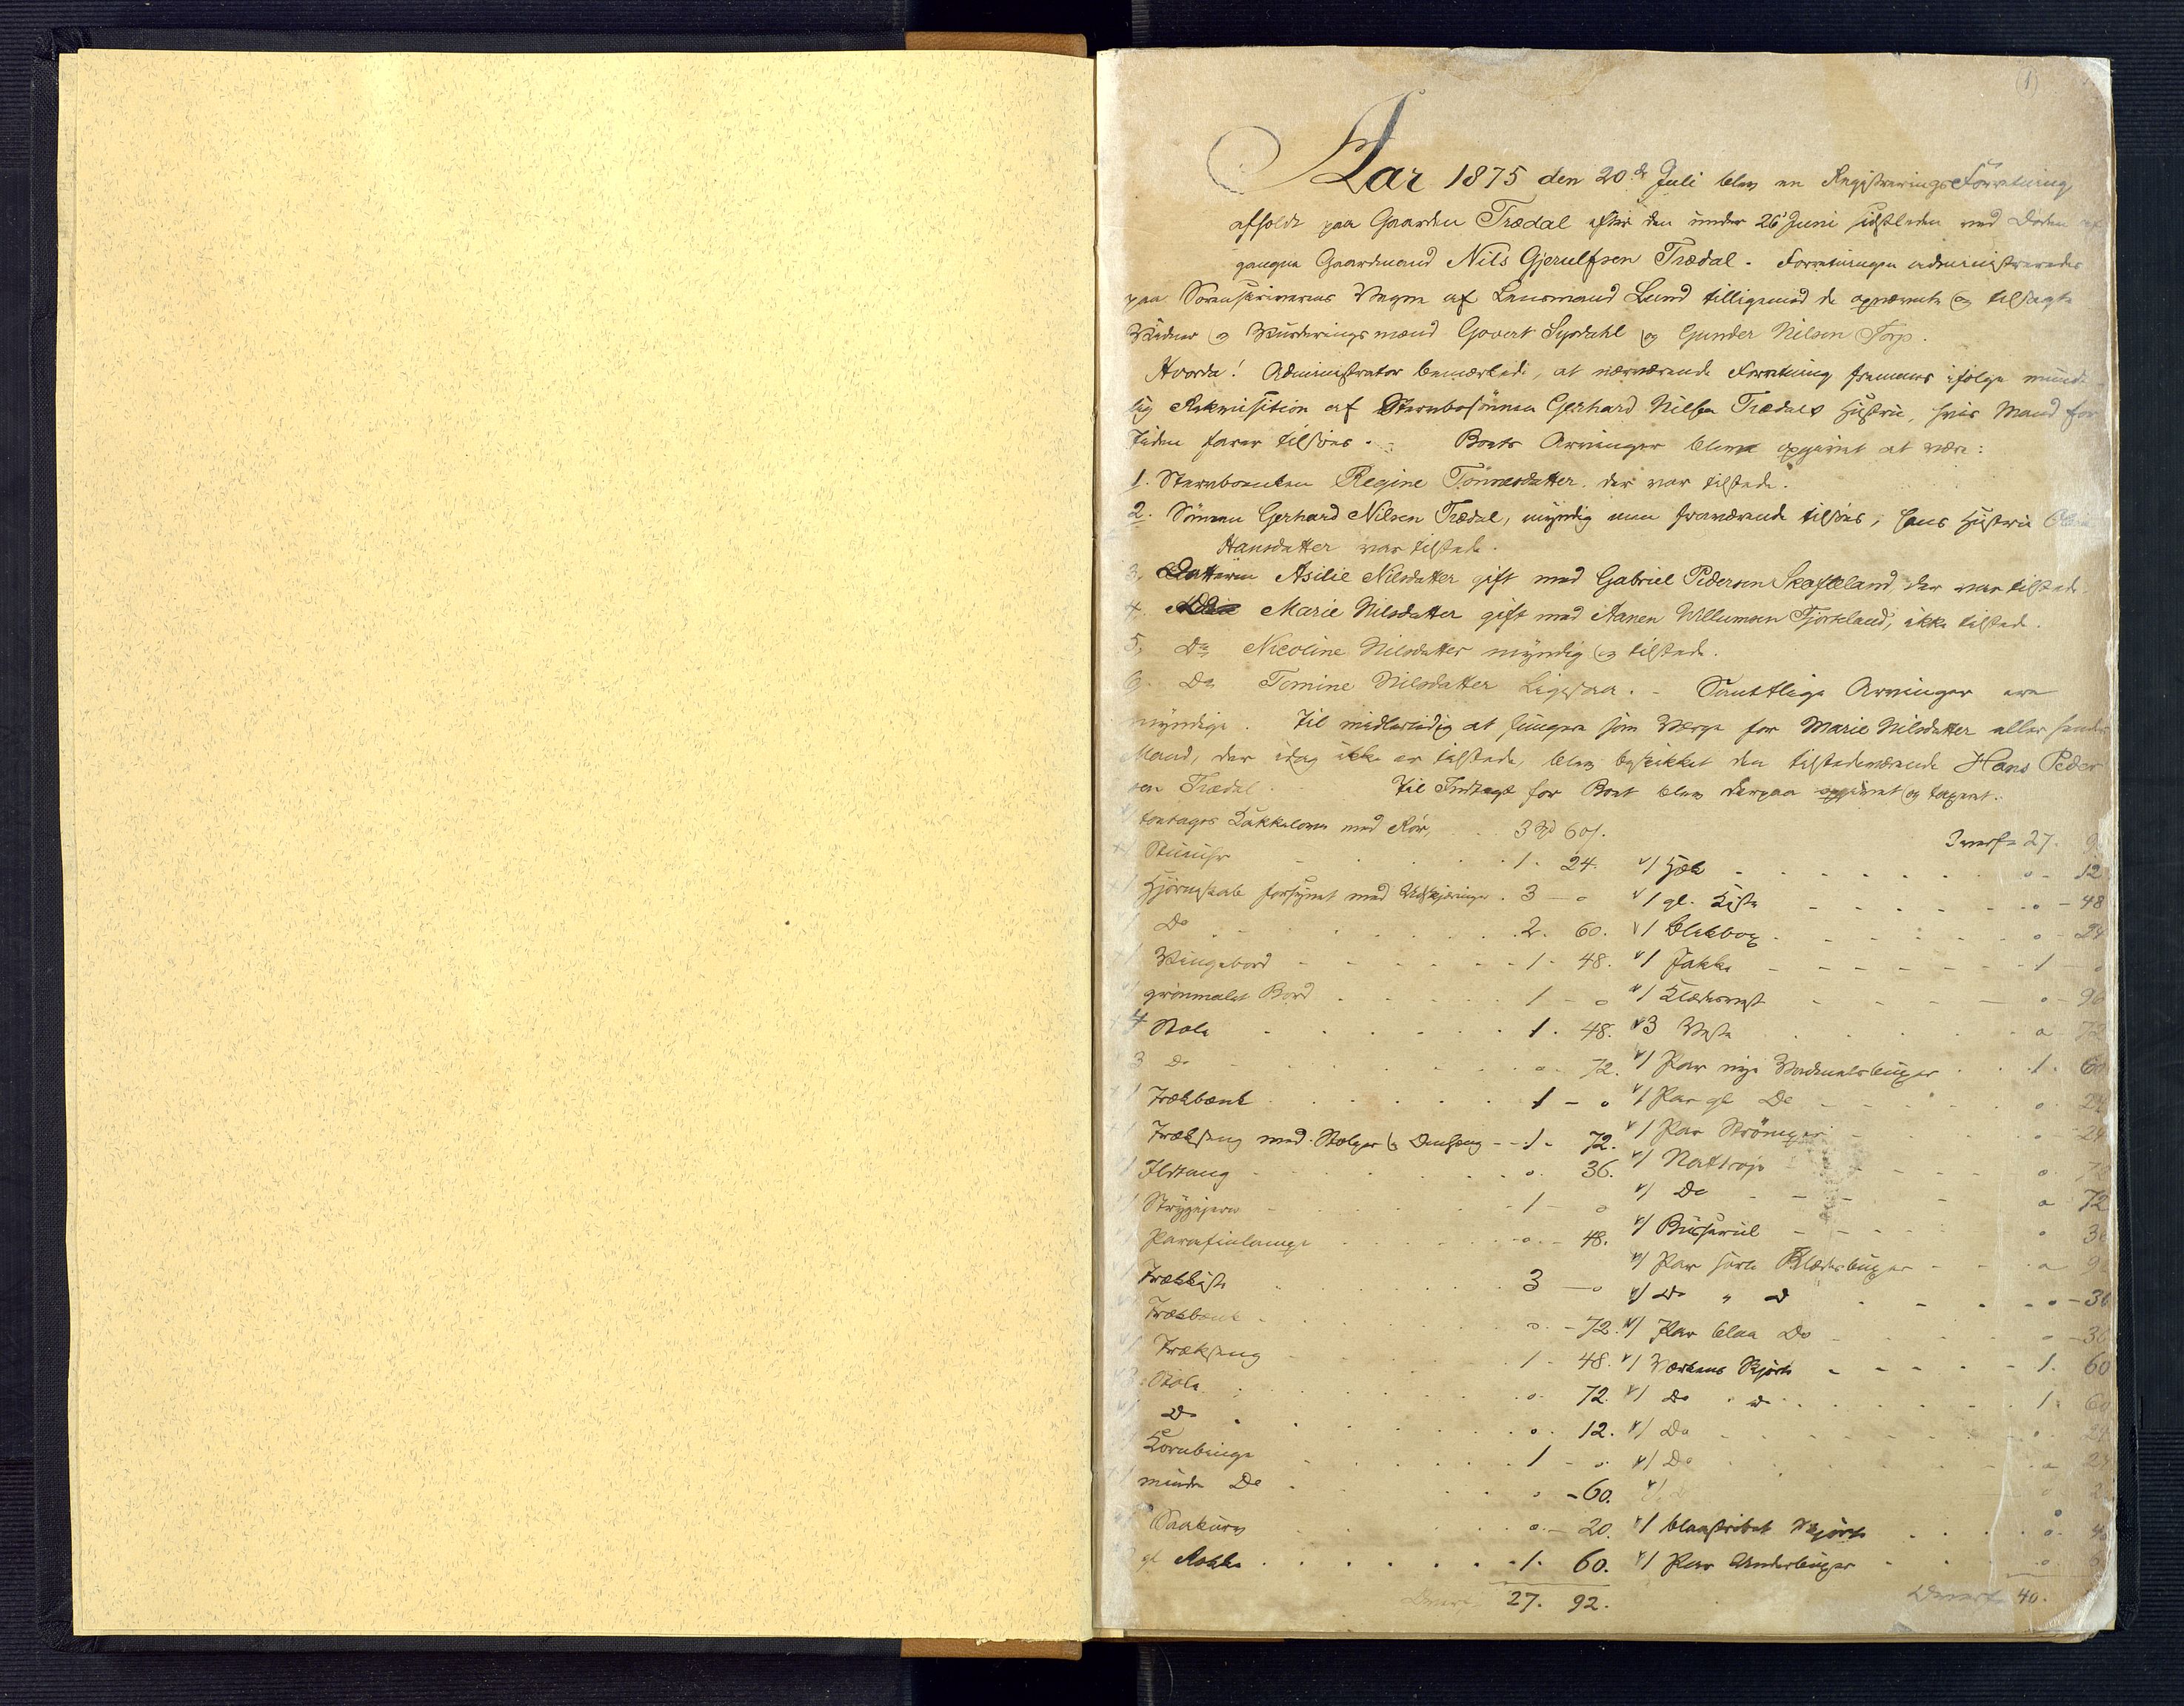 (1)
Aar 1875 den 20de Juli blev en RegistreringsForretning
afholdt paa Gaarden Trædal efter den under 26' Juni sidstleden ved Døden af
gangne Gaardmand Nils Gjerulfsen Trædal. Forretningen administreredes
paa Sorenskriverens Vegne af Lensmand Lund tilligemed de opnævnte og tilsagte
Vidner og Vurderingsmænd Govert Syrdahl og Gunder Nilsen Torp.
Hvorda! Administrator bemærkede, at nærværende Forretning fremmes ifølge mündt-
lig Rekvisition af Stervbosønnen Gerhard Nilsen Trædals Hustru, hvis Mand for
Tiden farer tilsøes. Boets Arvinger bleve opgivet at være:
1. Stervboenken Regine Tønnesdatter, der var tilstede.
2. Sønnen Gerhard Nilsen Trædal, myndig men fraværende tilsøes, hans Hustru
Hansdatter var tilstede.
3, Datteren Asilie Nilsdatter gift med Gabriel Pedersen Skofteland, der var tilstede.
4. Marie Nilsdatter gift med Aanen Willumsen Fjotland, ikke tilstede.
5, Do Nicoline Nilsdatter myndig og tilstede.
6. Do Tomine Nilsdatter Ligesaa. - Samtlige Arvinger ere
myndige. Til midlertidig at fungere som Værge for Marie Nilsdatter eller hendes
Mand, der idag ikke er tilstede, blev beskikket den tilstedeværende Hans Peder
sen Trædal. Til Indtægt for Boet blev derpaa opgivet og taxeret.
toetages Kakkelovn med Rør, 3 Spd 60 s.
1 Stuuhr 1. 24.
1 Hjørneskab forsynet med Udskjæringer. 3 - o
1 Do 2. 60.
1 Vingebord 1. 48.
1 grønmalet Bord 1 - o
4 Stole 1. 48.
3 Do o. 72.
1 Trækbænk 1 - o
1 Trækseng med Stolper og Omhæng 1. 72.
1 Ildtang o. 36.
1 Strygejern 1 - o
1 Parafinlampe o. 48.
1 Trækkiste 3 - o
Trækbænk o. 72.
1 Trækseng 1. 48.
3 Stole o. 72.
1 Do o. 12.
1 Kornbinge 1 - o
1 mindre Do o - 60.
Saakurv o. - 20.
gl Rokke 1. 60.
Overf. 27. 92.
Transf. 27. 9
1 Hæk o - 12
1 gl. Kiste o - 48
1 Blikbox o - 24
1 Jakke 1 - o
1 Klædesvest o - 96
3 Veste o 72
1 Par nye Vadmelsbuxer 1. 60
1 Par gl Do o. 24
1 Par Strømper o - 24
1 Nattrøje o. 72
1 Do o 72
1 Busserul o 36
1 Par sorte Klædesbuxer o 9
1 Do " Do o - 36
1 Par blaa Do o - 36
1 Værkens Skjørt 1. 60
1 Do Do 1. 60
1 Do o. 24
1 Do o 24
1 blaastribet Skjørt o. 4
1 Par Underbuxer o
Overf. 40.